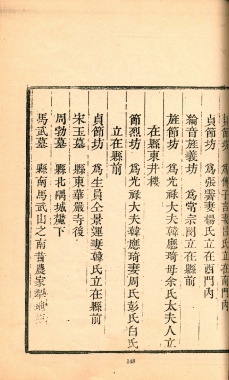 貞節坊 爲
立在南門內
貞節坊 爲張
妻楊氏立在西門內
綸音旌義坊 爲
宗
立在縣前
旌節坊 爲光祿大夫韓應琦母余氏太夫人立
在縣東井樓
節烈坊 爲光祿大夫韓應琦妻周氏彭氏白氏
立在縣前
貞節坊 爲生員
景運妻韓氏立在縣前
宋玉墓 縣東華嚴寺後
周勃墓 縣北隅城
下
馬武墓 縣南馬武山之南昔農家
148